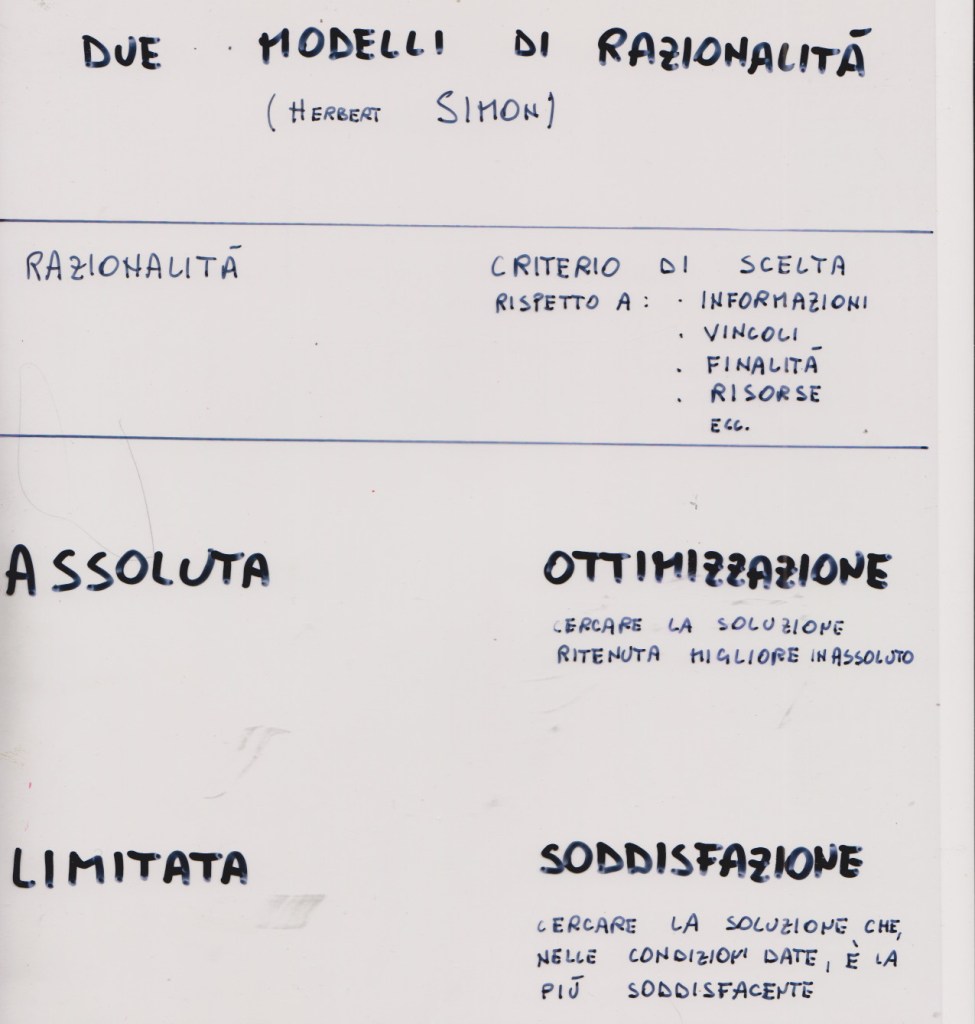 DUE MODELLI DI RAZIONALITÀ
(HERBERT SIMON)
RAZIONALITÀ
CRITERIO DI SCELTA
RISPETTO A: · INFORMAZIONI
· VINCOLI
· FINALITÀ
· RISORSE
ECC.
ASSOLUTA
OTTIMIZZAZIONE
CERCARE LA SOLUZIONE
RITENUTA MIGLIORE IN ASSOLUTO
LIMITATA
SODDISFAZIONE
CERCARE LA SOLUZIONE CHE,
NELLE CONDIZIONI DATE, È LA
PIÙ SODDISFACENTE